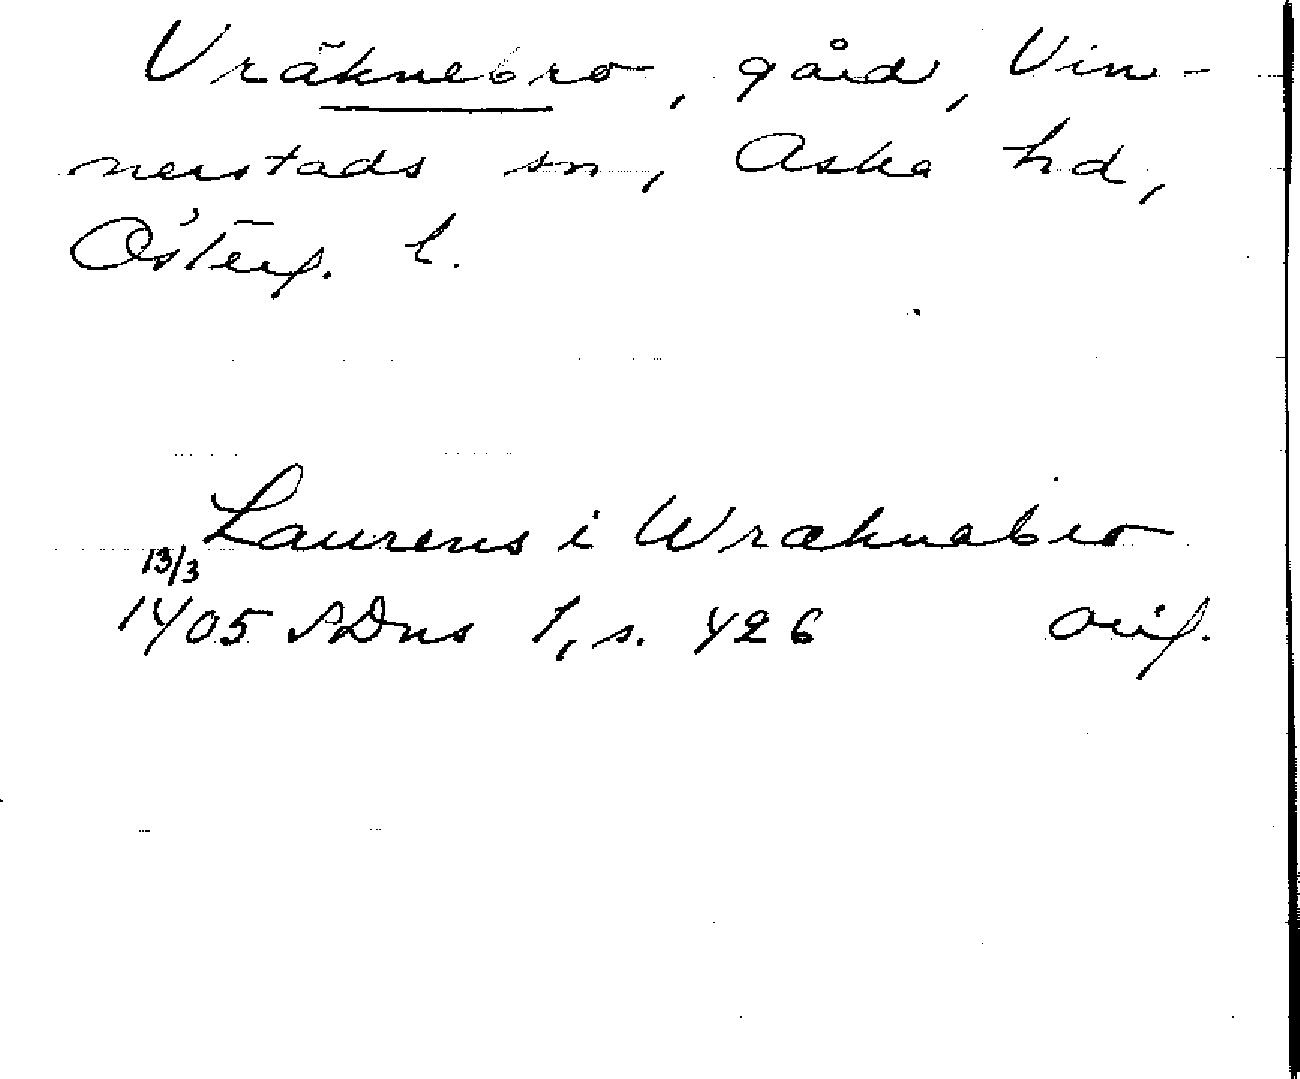 Vräknebro, gård, Vin-
nerstads sn, Aska hd,
Österg. l.
Laurens i Wræknabro
13/3
1405 SDns 1, s. 426 orig.